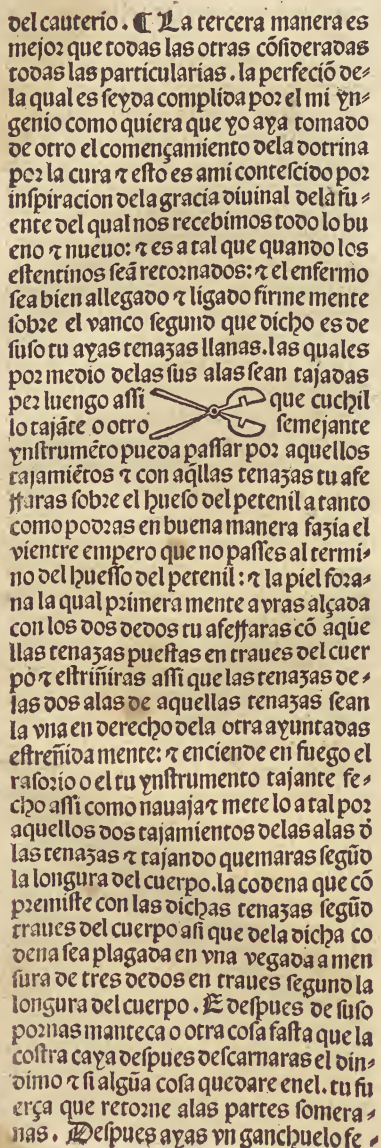 del cauterio. ¶ La tercera manera es
mejor que todas las otras cõsideradas
todas las particularias. la perfeciõ de⸗
la qual es seyda complida por el mi yn⸗
genio como quiera que yo aya tomado
de otro el començamiento dela dotrina
por la cura ⁊ esto es ami contescido por
inspiracion dela gracia diuinal dela fu⸗
ente del qual nos recebimos todo lo bu
eno ⁊ nueuo: ⁊ es a tal que quando los
estentinos seã retornados: ⁊ el enfermo
sea bien allegado ⁊ ligado firme mente
sobre el vanco segund que dicho es de
suso tu ayas tenazas llanas. las quales
por medio delas sus alas sean tajadas
per luengo assi que cuchil
lo tajãte o otro semejante
ynstrumẽto pueda passar por aquellos
tajamiẽtos ⁊ con aq̃llas tenazas tu afe
rraras sobre el hueso del petenil a tanto
como podras en buena manera fazia el
vientre empero que no passes al termi⸗
no del huesso del petenil: ⁊ la piel fora⸗
na la qual primera mente a vras alçada
con los dos dedos tu aferraras cõ aque
llas tenazas puestas en traues del cuer
po ⁊ estriñiras assi que las tenazas de⸗
las dos alas de aquellas tenazas sean
la vna en derecho dela otra ayuntadas
estreñida mente: ⁊ enciende en fuego el
rasorio o el tu ynstrumento tajante fe⸗
cho assi como nauaja ⁊ mete lo a tal por
aquellos dos tajamientos delas alas d̓
las tenazas ⁊ tajando quemaras segũd
la longura del cuerpo. la codena que cõ
premiste con las dichas tenazas segũd
traues del cuerpo asi que dela dicha co
dena sea plagada en vna vegada a men
sura de tres dedos en traues segund la
longura del cuerpo. E despues de suso
pornas manteca o otra cosa fasta que la
costra caya despues descarnaras el din⸗
dimo ⁊ si algũa cosa quedare enel. tu fu
erça que retorne alas partes somera⸗
nas. Despues ayas vn ganchuelo fe⸗